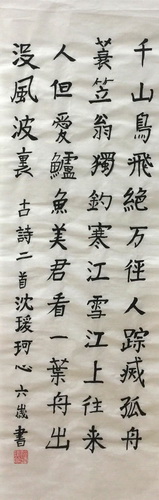 千山鳥飛絕万徑人踪滅孤舟
蓑笠翁獨釣寒江雪江上往来
人但愛鱸魚美君看一葉舟出
没風波裏 古詩二首沈瑗珂心六歲書